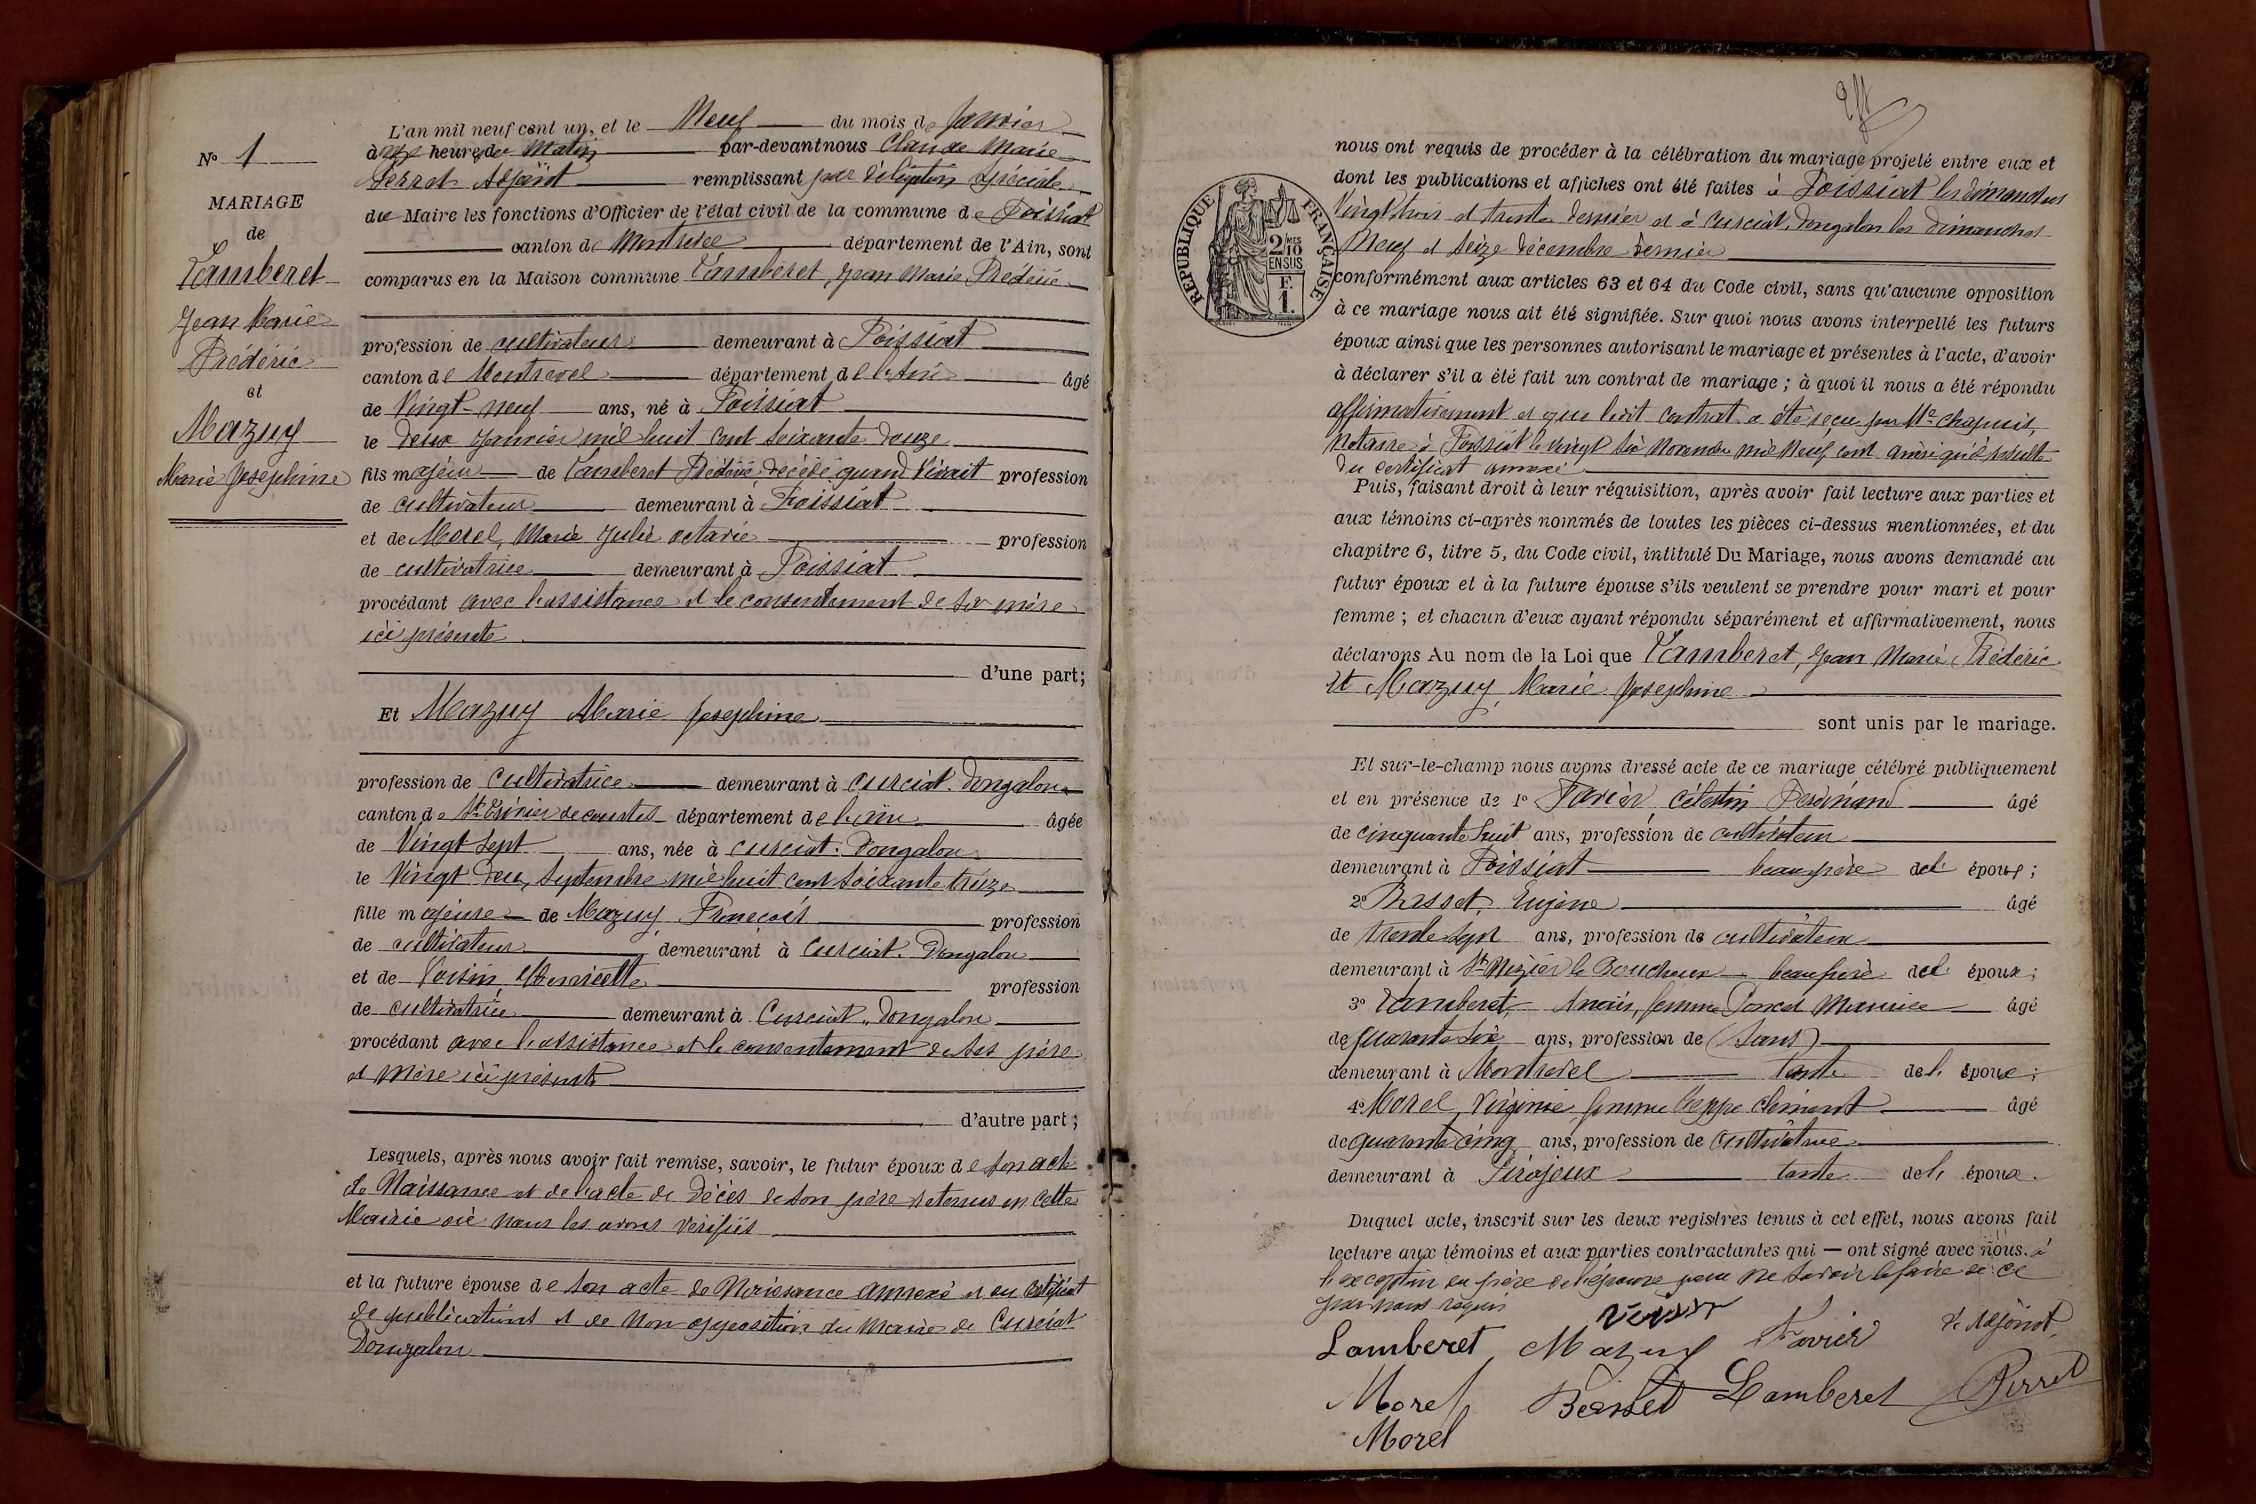 N° 1
MARIAGE
de
Lamberet
Jean Marie
Frédéric
et
Mazuy
Marie Josephine
L'an mil neuf cent un, et le Neuf du mois de Janvier
à onze heures du Matin par-devant nous Claude Marie
Perret Adjoint remplissant par délégation spéciale
du Maire les fonctions d'Officier de l'état civil de la commune de Foissiat
canton de Montrevel département de l'Ain, sont
comparus en la Maison commune Lamberet, Jean Marie Frédéric
profession de cultivateur demeurant à Foissiat
canton de Montrevel département de l'Ain âgé
de Vingt-neuf ans, né à Foissiat
le deux Janvier mil huit cent soixante douze
fils majeur de Lamberet Frédéric, décédé, quand vivait profession
de cultivateur demeurant à Foissiat
et de Morel, Marie Julie octavie profession
de cultivatrice demeurant à Foissiat
procédant avec l'assistance et le consentement de sa mère
ici présente
d'une part;
Et Mazuy Marie Josephine
profession de Cultivatrice demeurant à Curciat. Dongalon
canton de St Trivier de courtes département de l'ain âgée
de Vingt sept ans, née à Curciat. Dongalon
le Vingt deux, Septembre mil huit cent soixante treize
fille majeure de Mazuy, François profession
de cultivateur demeurant à Curciat. Dongalon
et de Voisin, Henriette profession
de cultivatrice demeurant à Curciat. Dongalon
procédant avec l'assistance et le consentement de ses père
et mère ici présents
d'autre part;
Lesquels, après nous avoir fait remise, savoir, le futur époux de son acte
de Naissance et de l'acte de Décès de son père retenus en cette
Mairie où nous les avons vérifiés
et la future épouse de son acte de Naissance annexé et du certificat
de publications et de Non opposition du Maire de Curciat
Dongalon
nous ont requis de procéder à la célébration du mariage projeté entre eux et
dont les publications et affiches ont été faites à Foissiat les dimanches
Vingt trois et trente dernier et à Curciat. Dongalon les Dimanches
Neuf et Seize décembre dernier
RÉPUBLIQUE FRANÇAISE
2/10
EN SUS
F.
1.
conformément aux articles 63 et 64 du Code civil, sans qu'aucune opposition
à ce mariage nous ait été signifiée. Sur quoi nous avons interpellé les futurs
époux ainsi que les personnes autorisant le mariage et présentes à l'acte, d'avoir
à déclarer s'il a été fait un contrat de mariage; à quoi il nous a été répondu
affirmativement et que ledit contrat a été reçu par Me Chapuis,
notaire à Foissiat le vingt six Novembre mil neuf cent ainsi qu'il résulte
du certificat annexé
Puis, faisant droit à leur réquisition, après avoir fait lecture aux parties et
aux témoins ci-après nommés de toutes les pièces ci-dessus mentionnées, et du
chapitre 6, titre 5, du Code civil, intitulé Du Mariage, nous avons demandé au
futur époux et à la future épouse s'ils veulent se prendre pour mari et pour
femme; et chacun d'eux ayant répondu séparément et affirmativement, nous
déclarons Au nom de la Loi que Lamberet, Jean Marie, Frédéric
et Mazuy, Marie Josephine
sont unis par le mariage.
Et sur-le-champ nous avons dressé acte de ce mariage célébré publiquement
et en présence de 1° Favier, Célestin Ferdinand âgé
de cinquante huit ans, profession de cultivateur
demeurant à Foissiat beau père de l'époux;
2° Basset, Eugène âgé
de trente sept ans, profession de cultivateur
demeurant à St Nizier le Bouchoux beau frère de l'époux;
3° Lamberet, Anaïs, femme Poncet Maurice âgé
de quarante six ans, profession de (sans)
demeurant à Montrevel tante de l'époux;
4° Morel, Virginie femme clément âgé
de quarante cinq ans, profession de Cultivatrice
demeurant à Jirajoux tante de l'époux.
Duquel acte, inscrit sur les deux registres tenus à cet effet, nous avons fait
lecture aux témoins et aux parties contractantes qui — ont signé avec nous. à
l'exception du père de l'épouse pour ne savoir le faire de ce
par nous requis
voisin
Lamberet Mazuy Favier L'adjoint,
Morel Basset Lamberet Perret
Morel